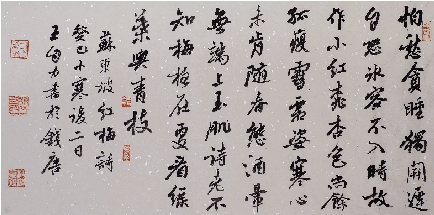 怕愁貪睡獨開遲
自恐冰容不入時故
作小紅桃杏色尚餘
孤瘦雪霜姿寒心
未肯随春態酒暈
無端上玉肌詩老不
知梅格在更看緑
葉與青枝
蘇東坡紅梅詩
癸巳小寒後二日
王 力書於錢唐